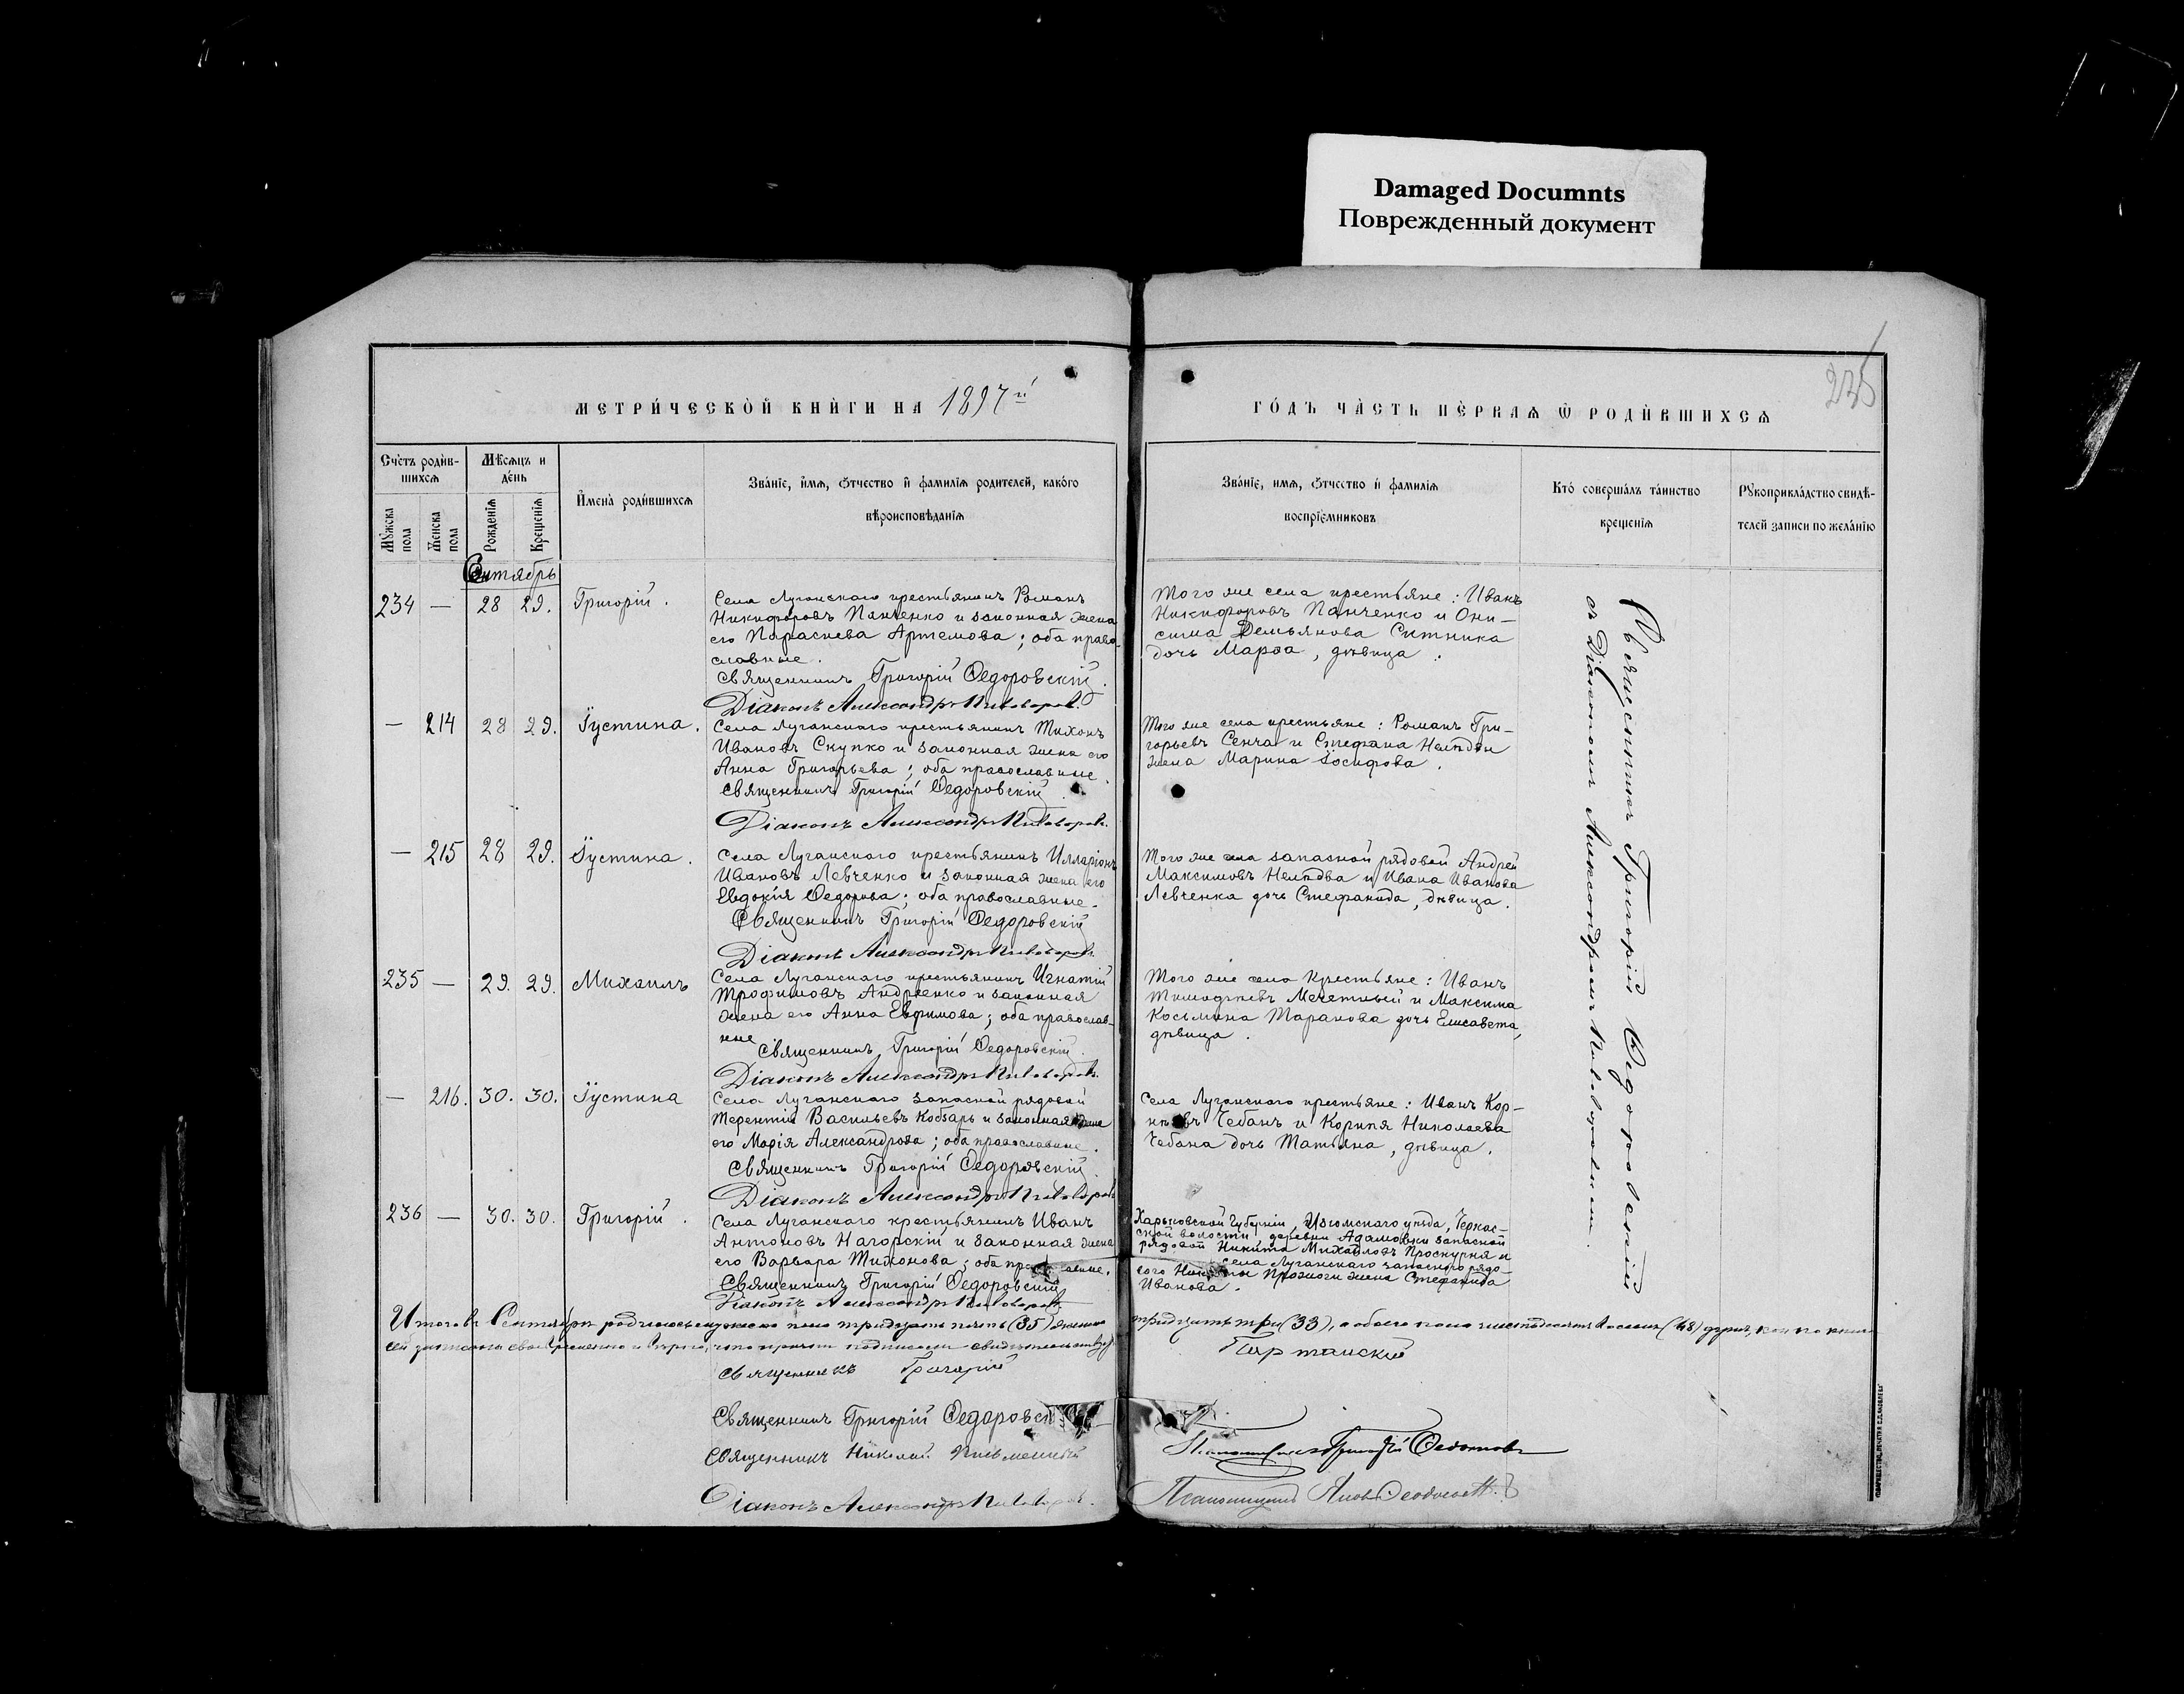 Damaged Documnts
Поврежденный документ
235
МЕТРИ́ЧЕСКОЙ КНИ́ГИ НА 1897й
ГО́ДЪ ЧА́СТЬ ПЕ́РВАѦ Ѡ РОДИ́ВШИХСѦ
Сче́тъ роди́в-
шихсѧ
Мѣ́сѧцъ и
де́нь
Мꙋ́жска
пола
Же́нска
пола
Рожде́нїѧ
Креще́нїѧ
И́мена̀ роди́вшихсѧ
Зва́нїе, и́мѧ, ѻ́тчество и҆ фами́лїѧ роди́телей, како́го
вѣроисповѣ́данїѧ
Зва́нїе, и́мѧ, ѻ́тчество и҆ фами́лїѧ
воспрїе́мниковъ
Кто́ соверша́лъ та́инство
креще́нїѧ
Рꙋкоприкла́дство свидѣ́-
телей записи по жела́нїю
Сентябрь
234 — 28 29. Григорій.
Села Луганскаго крестьянинъ Романъ
Никифоровъ Панченко и законная жена
его Параскева Артемова; оба право-
славные.
Священникъ Григорій Ѳедоровскій.
Діаконъ Александръ Пивоваровъ.
Того же села крестьяне: Иванъ
Никифоровъ Панченко и Они-
сима Демьянова Ситника
дочь Марѳа, дѣвица.
— 214 28 29. Іустина.
Села Луганскаго крестьянинъ Тихонъ
Ивановъ Скупко и законная жена его
Анна Григорьева; оба православные.
Священникъ Григорій Ѳедоровскій
Діаконъ Александръ Пивоваровъ.
Того же села крестьяне: Романъ Гри-
горьевъ Сенча и Стефана
жена Марина Іосифова.
— 215 28 29. Іустина.
Села Луганскаго крестьянинъ Илларіонъ
Ивановъ Левченко и законная жена его
Евдокія Ѳедорова; оба православные.
Священникъ Григорій Ѳедоровскій
Діаконъ Александръ Пивоваровъ.
Того же села запасной рядовой Андрей
Максимовъ и Ивана Иванова
Левченка дочь Стефанида, дѣвица.
235 — 29. 29. Михаилъ
Села Луганскаго крестьянинъ Игнатій
Трофимовъ Андреенко и законная
жена его Анна Евфимова; оба православ-
ные
Священникъ Григорій Ѳедоровскій.
Діаконъ Александръ Пивоваровъ.
Того же села крестьяне: Иванъ
Тимоѳеевъ Мечетный и Максима
Косьмина Таранова дочь Елисавета,
дѣвица.
— 216. 30. 30. Іустина
Села Луганскаго запасной рядовой
Терентій Васильевъ Кобзарь и законная жена
его Марія Александрова; оба православные.
Священникъ Григорій Ѳедоровскій.
Діаконъ Александръ Пивоваровъ
Села Луганскаго крестьяне: Иванъ Кор-
нѣевъ Чебанъ и Корнія Николаева
Чебана дочь Татьяна, дѣвица.
236 — 30. 30. Григорій.
Села Луганскаго крестьянинъ Иванъ
Антоновъ Нагорскій и законная жена
его Варвара Тихонова; оба православные.
Священникъ Григорій Ѳедоровскій
Діаконъ Александръ Пивоваровъ
Харьковской Губерніи, Изюмскаго уѣзда, Черкас-
ской волости, деревни Адамовки запасной
рядовой Никита Михайловъ Проскурня и
села Луганскаго запаснаго рядо-
вого жена Стефанида
Иванова.
Священникъ Григорій Ѳедоровскій
съ Діакономъ Александромъ Пивоваровымъ.
Итого въ Сентябрѣ родилось мужеска пола тридцать пять (35) женска
тридцать три (33), а обоего пола шестьдесятъ восемь (68) душъ, кои по книгѣ
сей записаны своевременно и вѣрно, что причтъ подписомъ свидѣтельствуетъ
Священникъ Григорій
Партанскій
Священникъ Григорій Ѳедоровскій
Священникъ Николай
Діаконъ Александръ Пивоваровъ.
Псаломщикъ Григорій Ѳедотовъ
Псаломщикъ